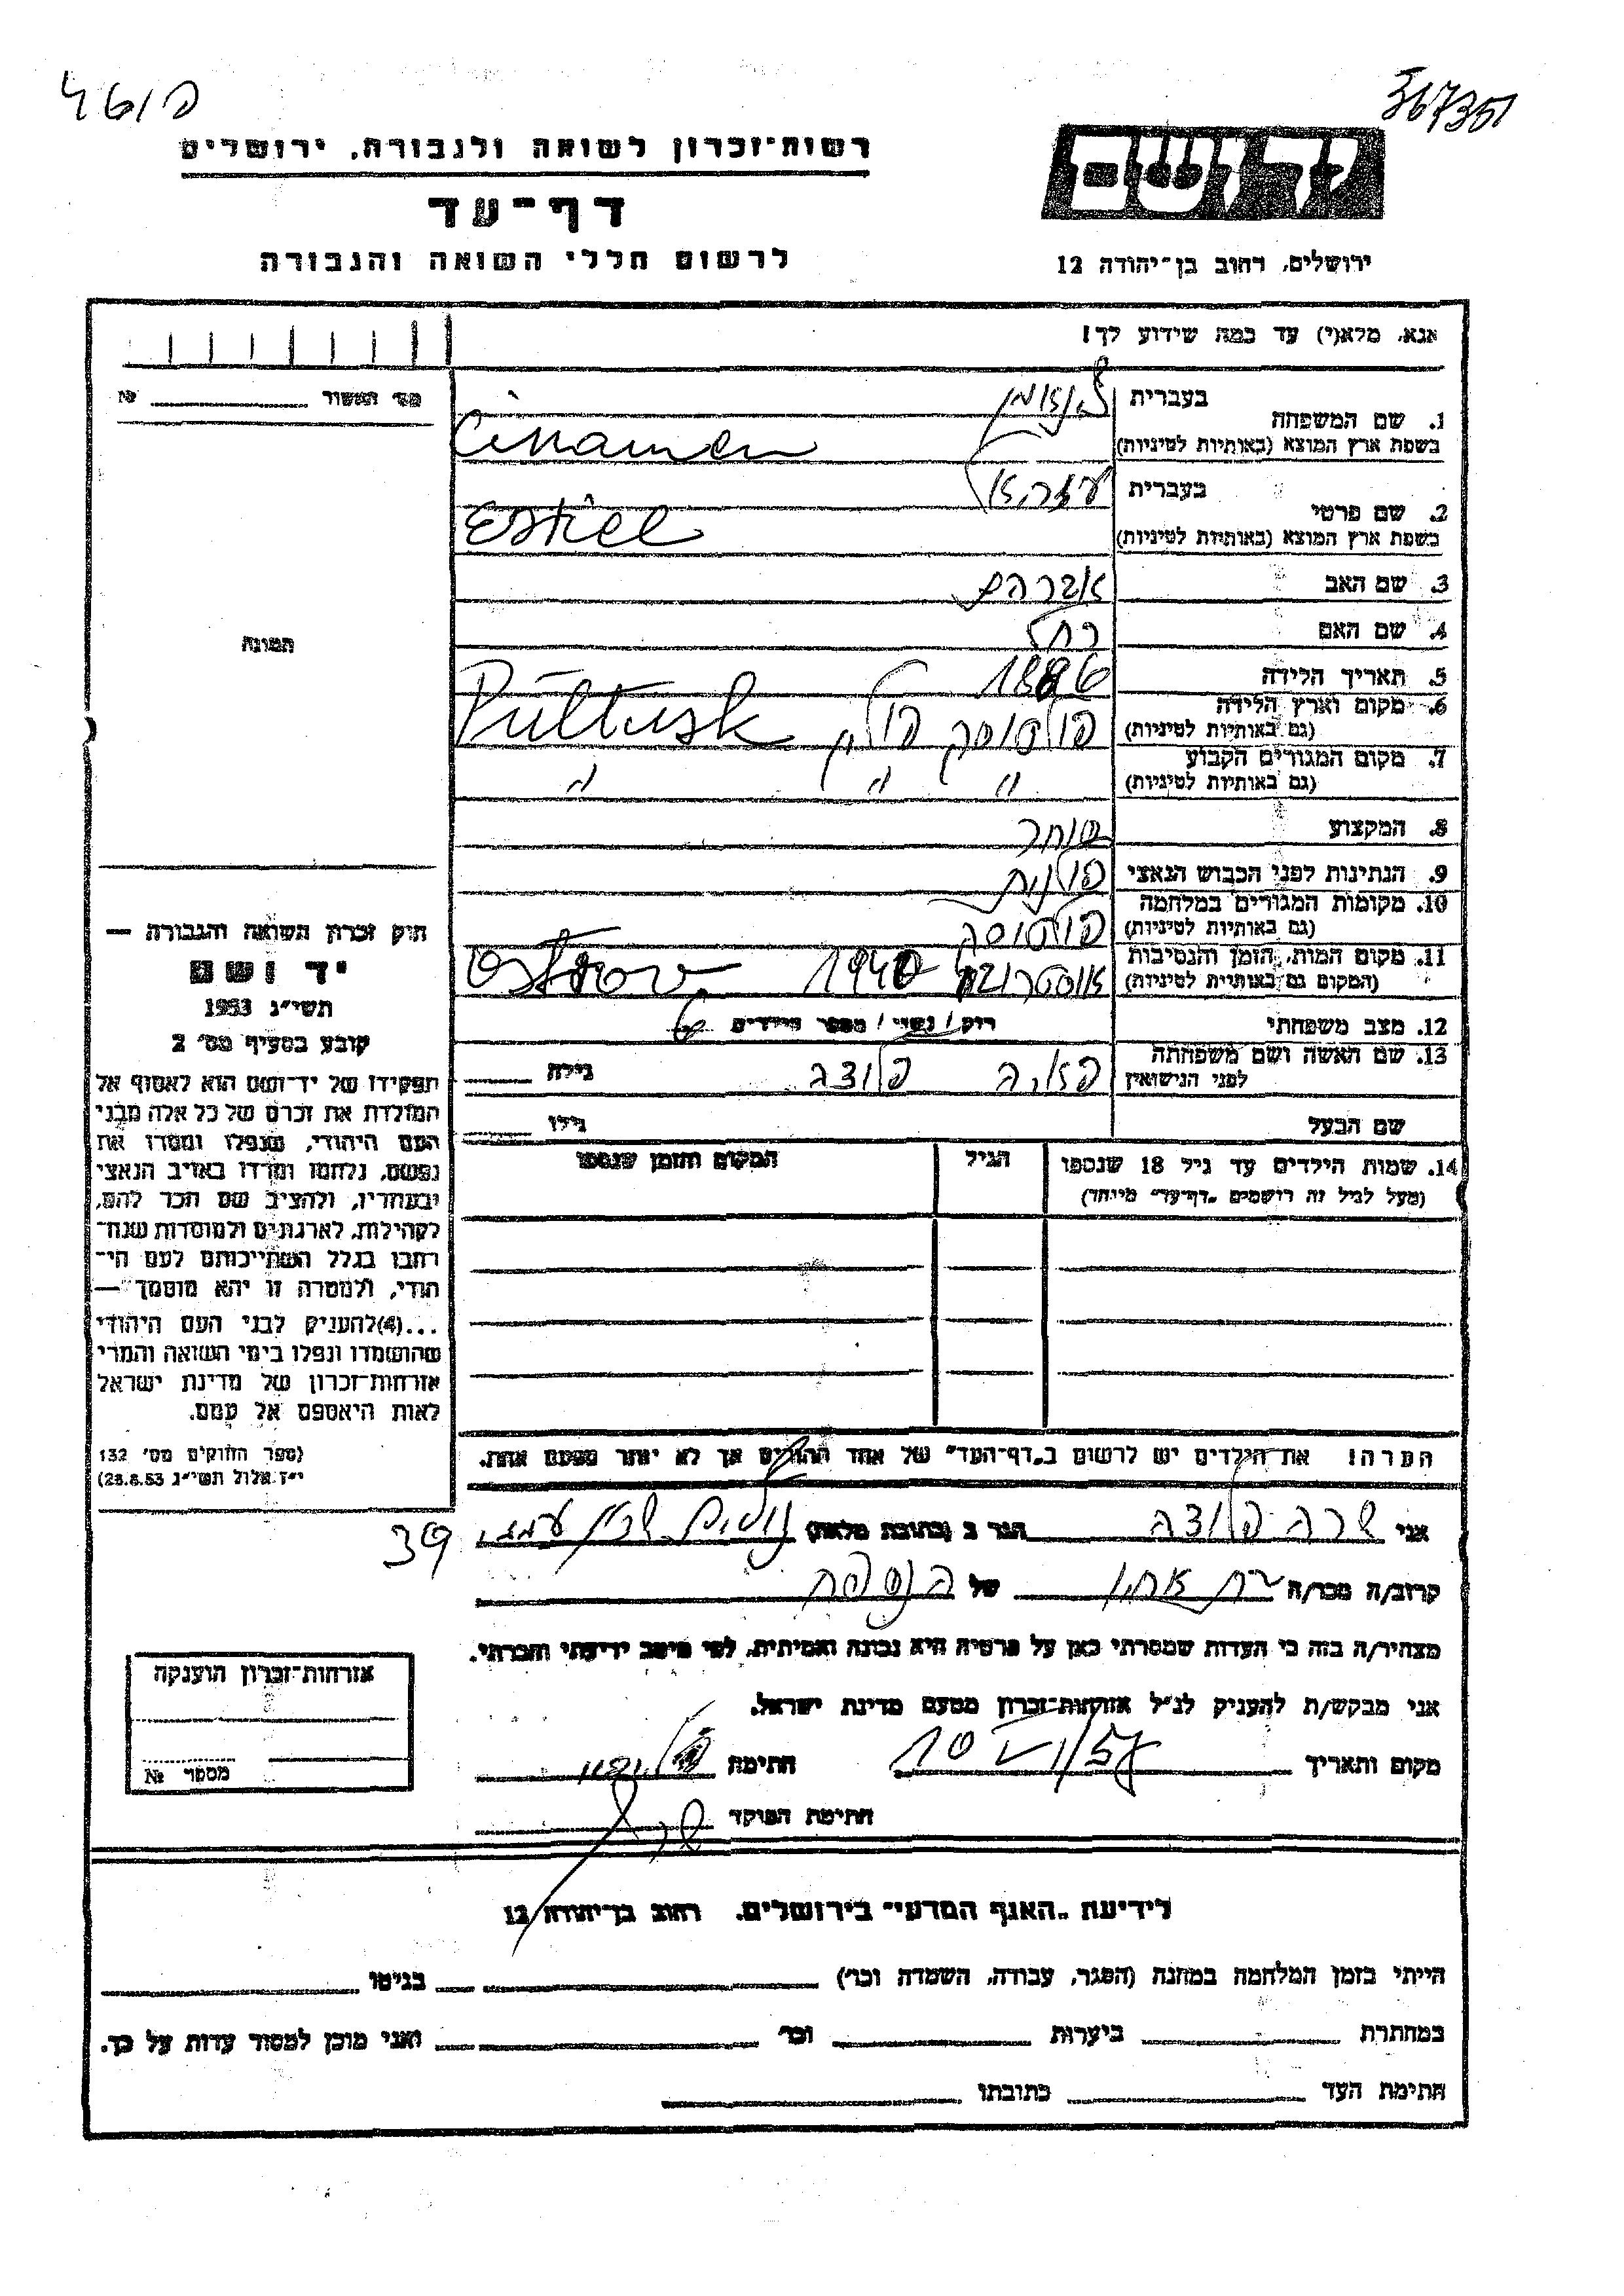 367301
רשות־זכרון לשואה ולגבורה, ירושלים
דף־עד
לרשום חללי השואה והגבורה
ידושם
ירושלים, רחוב בן־יהודה 12
אנא, מלא(י) עד כמה שידוע לך!
מס' האשור № 
1. שם המשפחה
בעברית
בשפת ארץ המוצא (באותיות לטיניות)
Cinamon
2. שם פרטי
בעברית
בשפת ארץ המוצא (באותיות לטיניות)
3. שם האב אברהם
4. שם האם רחל
5. תאריך הלידה 1886
6. מקום וארץ הלידה (גם באותיות לטיניות) פולטוסק פולין Pultusk
7. מקום המגורים הקבוע (גם באותיות לטיניות) " " "
8. המקצוע סוחר
9. הנתינות לפני הכבוש הנאצי פולנית
10. מקומות המגורים במלחמה (גם באותיות לטיניות) פולטוסק
11. מקום המות, הזמן והנסיבות (המקום גם באותיות לטיניות) 1940 Ostrov
12. מצב משפחתי רוק / נשוי / מספר הילדים 6
13. שם האשה ושם משפחתה לפני הנישואין גילה
שם הבעל גילו
14. שמות הילדים עד גיל 18 שנספו הגיל המקום והזמן שנספו
(מעל לגיל זה רושמים "דף־עד" מיוחד)
תמונה
חוק זכרון השואה והגבורה —
יד ושם
תשי"ג 1953
קובע בסעיף מס' 2
תפקידו של יד־ושם הוא לאסוף אל
המולדת את זכרם של כל אלה מבני
העם היהודי, שנפלו ומסרו את
נפשם, נלחמו ומרדו באויב הנאצי
ובעוזריו, ולהציב שם וזכר להם,
לקהילות, לארגונים ולמוסדות שנח־
רבו בגלל השתייכותם לעם הי־
הודי, ולמטרה זו יהא מוסמך —
...(4)להעניק לבני העם היהודי
שהושמדו ונפלו בימי השואה והמרי
אזרחות־זכרון של מדינת ישראל
לאות היאספם אל עמם.
(ספר החוקים מס' 132
י"ז אלול תשי"ג 28.8.53)
הערה! את הילדים יש לרשום ב"דף־העד" של אחד ההורים אך לא יותר מפעם אחת.
אני שרה הגר ב (כתובת מלאה) 39
קרוב/ה מכר/ה של הנספה
מצהיר/ה בזה כי העדות שמסרתי כאן על פרטיה היא נכונה ואמיתית, לפי מיטב ידיעתי והכרתי.
אני מבקש/ת להעניק לנ"ל אזרחות־זכרון מטעם מדינת ישראל.
מקום ותאריך חתימה
חתימת הפוקד
אזרחות־זכרון הוענקה
מספר №
לידיעת "האגף המדעי" בירושלים, רחוב בן־יהודה 12
הייתי בזמן המלחמה במחנה (הסגר, עבודה, השמדה וכו') בגיטו
במחתרת ביערות וכו' ואני מוכן למסור עדות על כך.
חתימת העד כתובתו